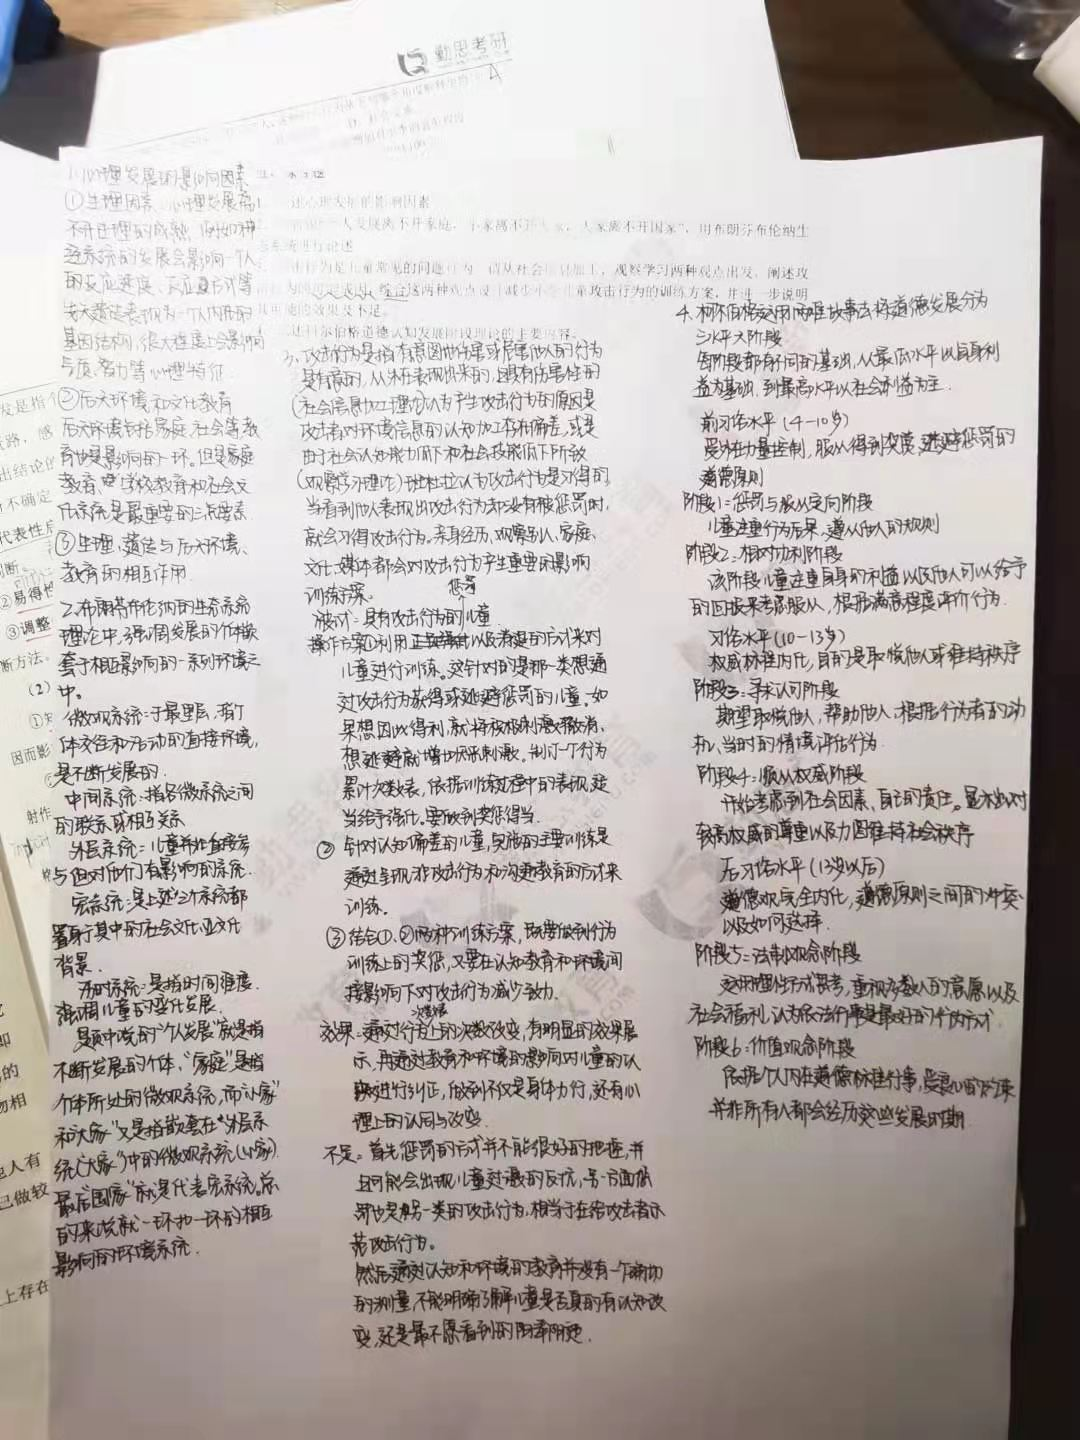 勤思考研
A
1.心理发展的影响因素
①生理因素、心理发展离
不开生理的成熟,例如神
经系统的发展会影响一个人
的反应速度、反应方式等
先天遗传表现为一个人内在的
基因结构,很大程度上会影响
气质、智力等心理特征.
②后天环境和文化教育
后天环境包括家庭、社会等,教
育也是影响的一环。但是家庭
教育、学校教育和社会文
化系统是最重要的三点要素.
③生理、遗传与后天环境、
教育的相互作用.
2.布朗芬布伦纳的生态系统
理论中,强调发展的个体嵌
套于相互影响的一系列环境之
中。
微观系统:于最里层,指个
体交往和活动的直接环境,
是不断发展的.
中间系统:指各微系统之间
的联系或相互关系
外层系统:儿童并非直接参
与但对他们有影响的系统.
宏系统:是上述三个系统都
置身于其中的社会文化亚文化
背景.
历时系统:是指时间维度.
强调儿童的变化发展.
是题中说的"个人发展"就是指
不断发展的个体,"家庭"是指
个体所处的微观系统,而"小家"
和"大家"又是指嵌套在"外层系
统("大家")中的微观系统(小家).
最后"国家"就是代表宏系统。总
的来说就一环扣一环的相互
影响的环境系统.
述心理发展的影响因素
人发展离不开家庭,小家离不开大家,大家离不开国家",用布朗芬布伦纳生
系统进行论述
击行为是儿童常见的问题行为,请从社会信息加工,观察学习两种观点出发,阐述攻
综合这两种观点设计减少小学儿童攻击行为的训练方案,并进一步说明
可能的效果及不足。
述科尔伯格道德认知发展阶段理论的主要内容。
3、攻击行为是指有意图地伤害或危害他人的行为
是有意的,从外在表现出来的,且具有伤害性的
(社会信息加工理论)认为产生攻击行为的原因是
攻击者对环境信息的认知加工存在偏差,或是
由于社会认知能力低下和社会技能低下所致
(观察学习理论)班杜拉认为攻击行为是习得的.
当看到他人表现出攻击行为却没有被惩罚时,
就会习得攻击行为。亲身经历,观察别人、家庭、
文化、媒体都会对攻击行为产生重要的影响
训练方案.
被试:具有攻击行为的儿童.
操作方案①利用以及消退的方式来对
儿童进行训练。这针对的是那一类想通
过攻击行为获得或逃避惩罚的儿童。如
果想因此得利,就将积极刺激撤消,
想逃避就增加厌恶刺激。制订一个行为
累计次数表,依据训练过程中的表现,适
当给予强化。要做到奖惩得当.
② 针对认知偏差的儿童,实施的主要训练是
通过呈现非攻击行为和沟通教育的方式来
训练.
③结合①、②两种训练方案,既要做到行为
训练上的奖惩,又要在认知教育和环境间
接影响下对攻击行为减少努力.
效果:通过行为上的次数改变,有明显的效果展
示,再通过教育和环境的影响对儿童的认
知进行纠正,做到不仅是身体力行,还有心
理上的认同与改变.
不足:首先惩罚的方式并不能很好的把控,并
且可能会出现儿童过激的反抗,另一方面惩
罚也是另一类的攻击行为,相当于在给攻击者示
范攻击行为。
然后通过认知和环境的教育并没有一个确切
的测量,不能明确了解儿童是否真的有认知改
变,还是最不愿看到的阳奉阴违.
4.柯尔伯格运用两难故事法将道德发展分为
三水平六阶段
每阶段都有不同的基础,从最低水平以自身利
益为基础,到最高水平以社会利益为主.
前习俗水平(4-10岁)
受外在力量控制,服从得到奖赏,逃避惩罚的
道德原则
阶段1:惩罚与服从定向阶段
儿童注重行为后果、遵从他人的规则
阶段2:相对功利阶段
该阶段儿童注重自身的利益以及他人可以给予
的回报来考虑服从,根据满意程度评价行为.
习俗水平(10-13岁)
权威标准内化,目的是取悦他人或维持秩序
阶段3:寻求认可阶段
期望取悦他人,帮助他人,根据行为者的动
机、当时的情境评估行为.
阶段4:顺从权威阶段
开始考虑到社会因素、自己的责任。显示出对
较高权威的尊重以及力图维持社会秩序
后习俗水平(13岁以后)
道德观完全内化,道德原则之间的冲突
以及如何选择.
阶段5:法制观念阶段
运用理性方式思考,重视多数人的意愿以及
社会福利,认为依法行事是最好的行为方式
阶段6:价值观念阶段
依据个人内在道德标准行事,受良心的约束
并非所有人都会经历这些发展时期.